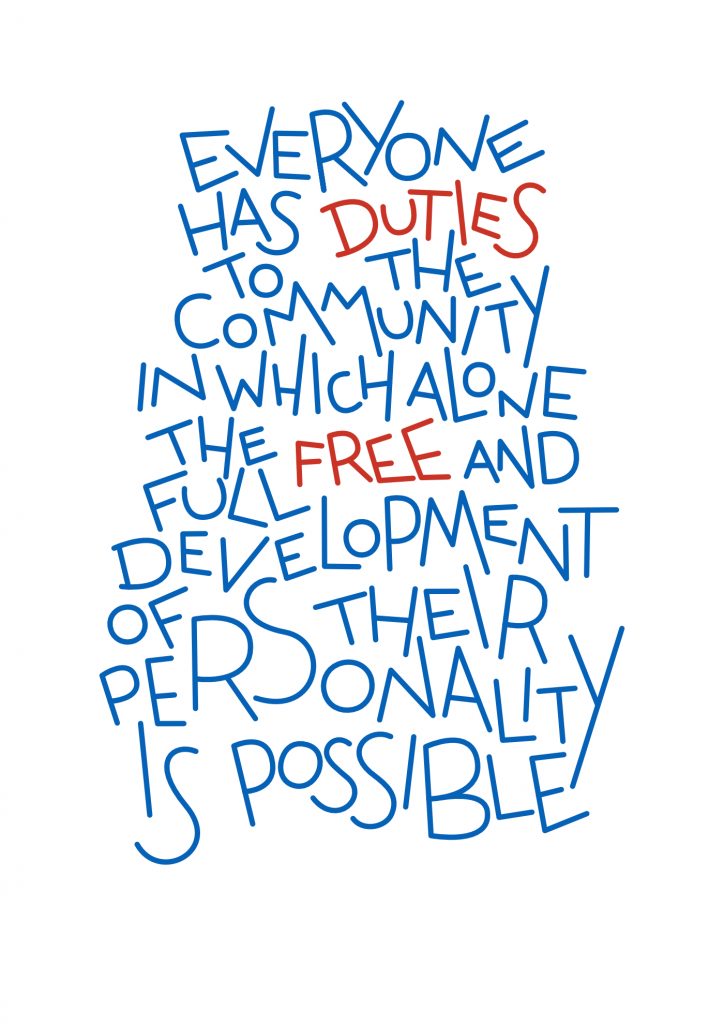 EVERYONE
HAS DUTIES
TO THE
COMMUNITY
IN WHICH ALONE
THE FREE AND
FULL
DEVELOPMENT
OF THEIR
PERSONALITY
IS POSSIBLE